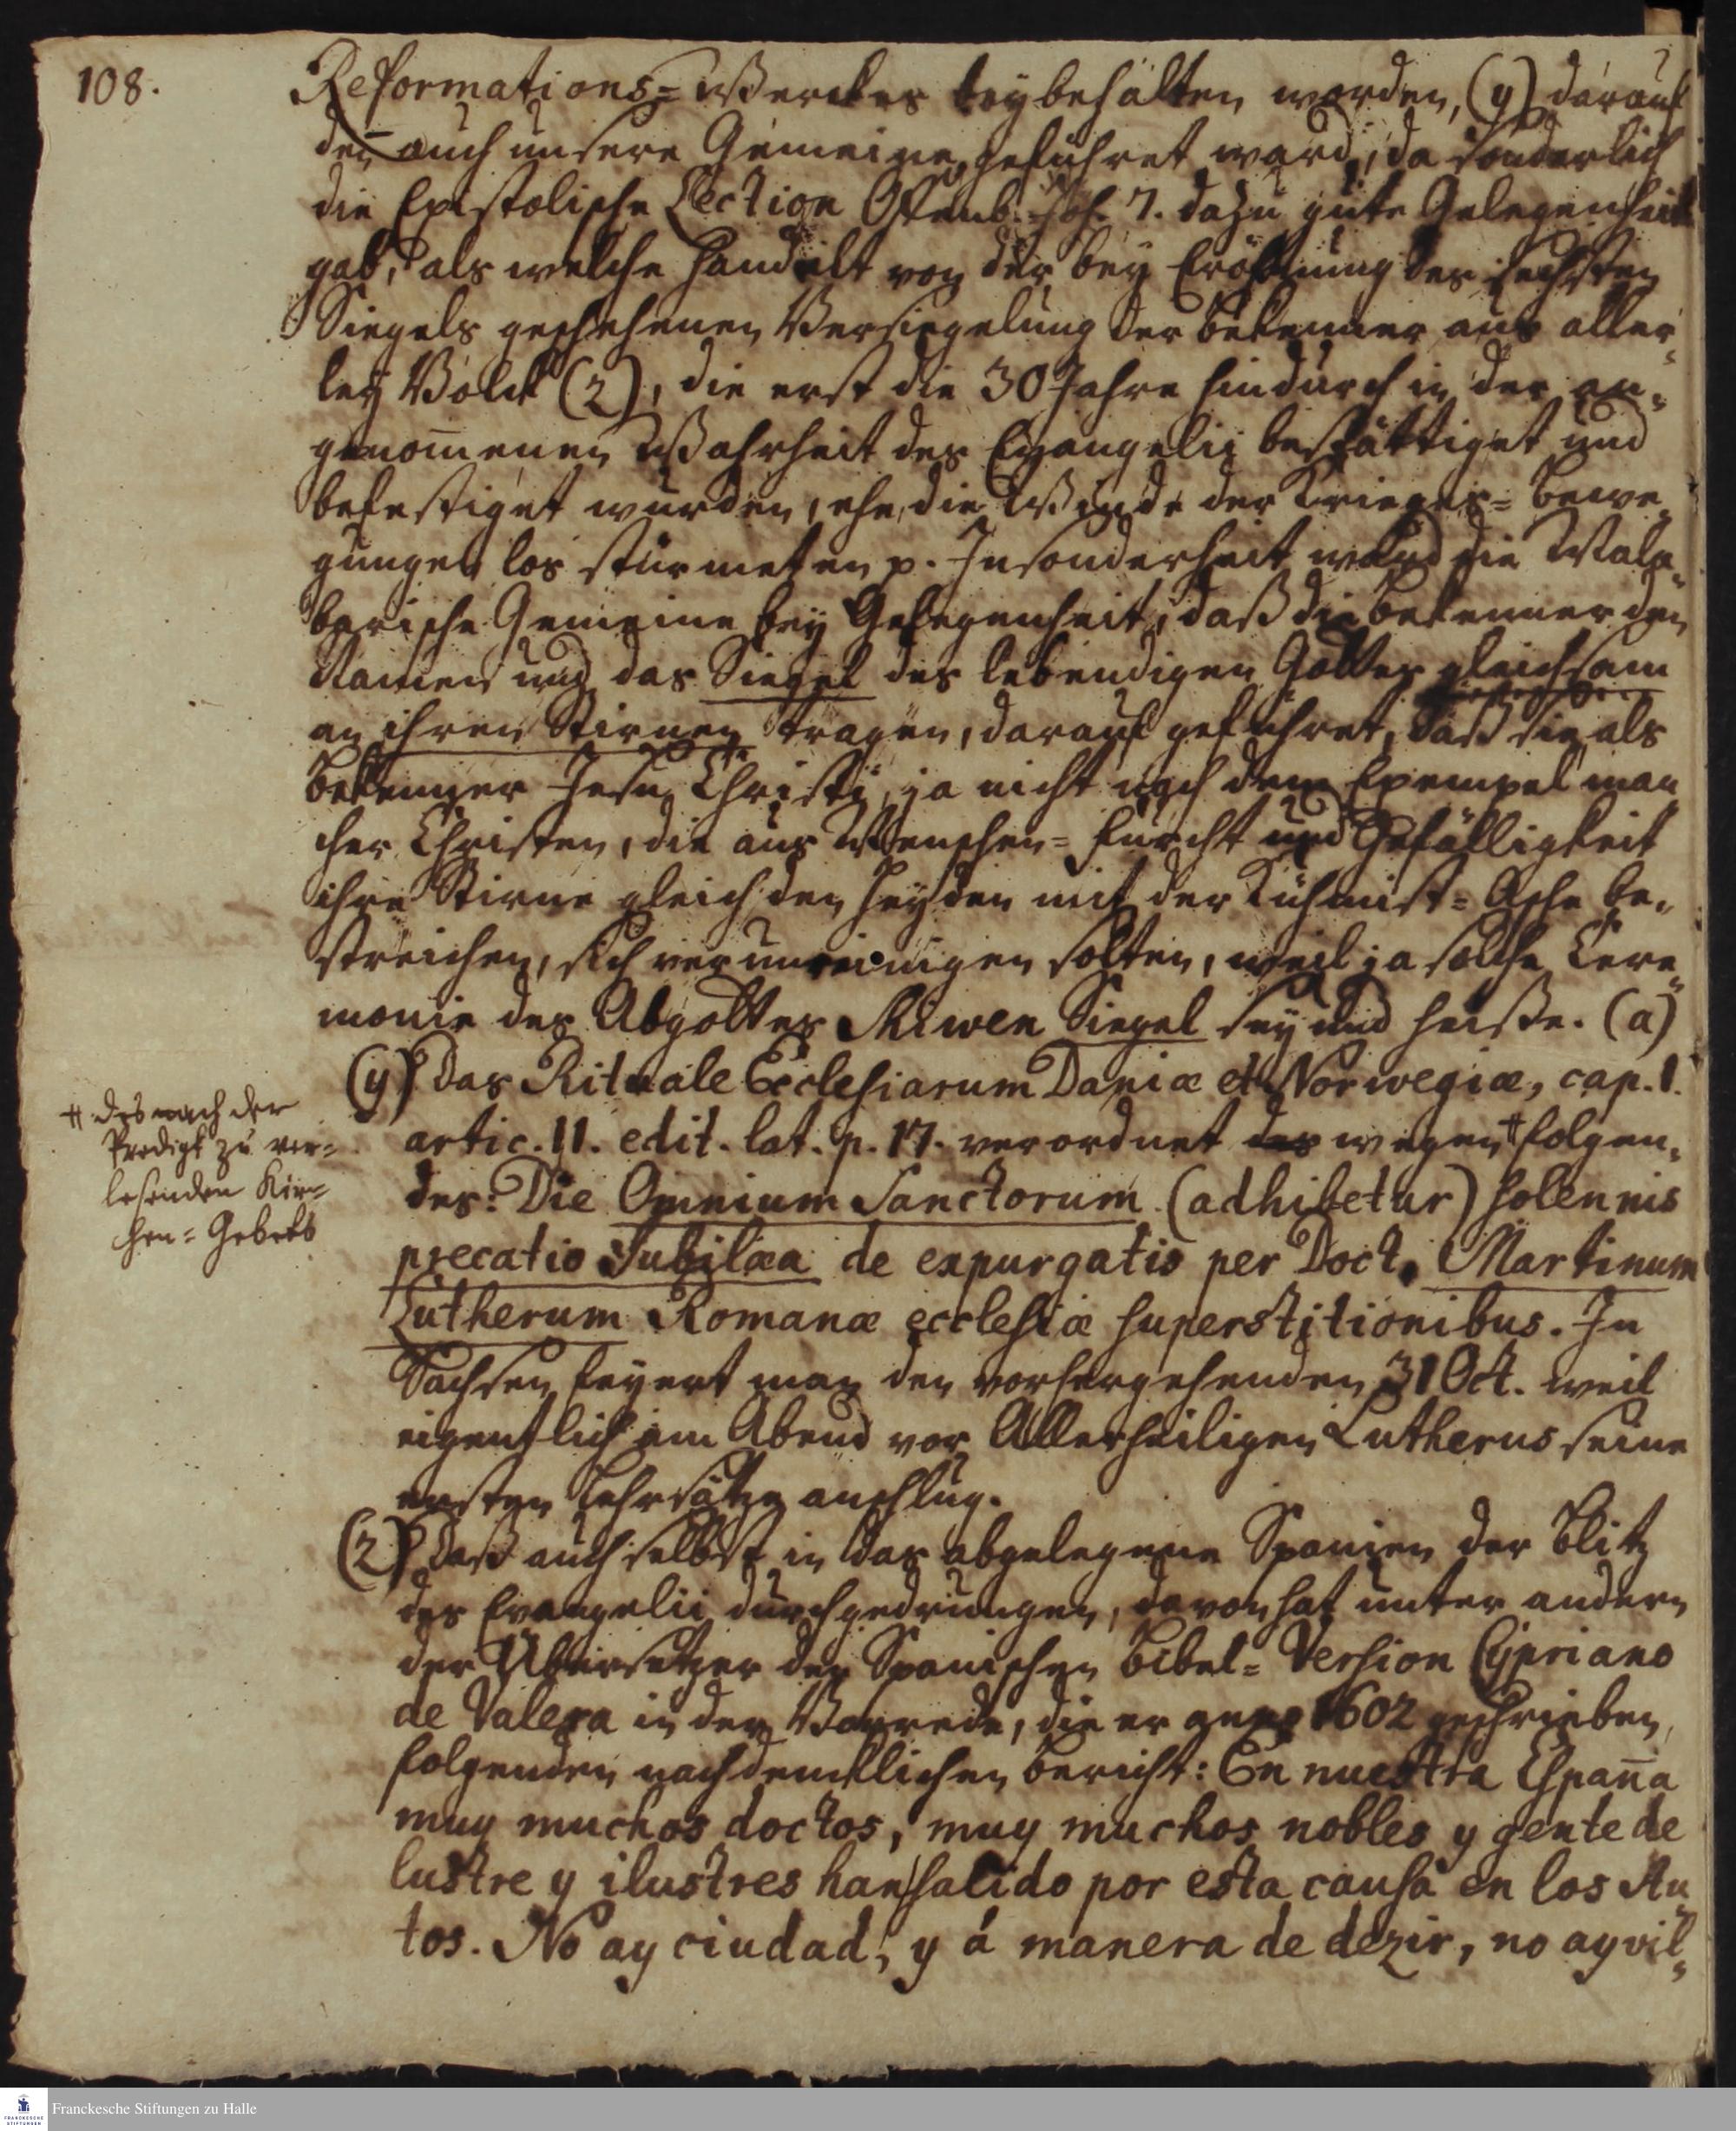 108.
Reformations-Werckes beybehalten worden, (y) darauf
den auch unsere Gemeine geführet ward, da sonderlich
die Epistolische Lection Offenb. Joh. 7. dazu gute Gelegenheit
gab, als welche handelt von der bey Eröffnung des sechsten
Siegels geschehenen Versiegelung der Bekenner aus aller-
ley Volck (z), die erst die 30 Jahre hindurch in der an-
genom̄enen Wahrheit des Evangelii bestättiget und
befestiget wurden, ehe die Winde der Krieges-Bewe-
gungen los stürmeten p. Insonderheit ward die Mala-
barische Gemeine bey Gelegenheit, daß die Bekenner den
Namen und das Siegel des lebendigen Gottes gleichsam
an ihren Stirnen tragen, darauf geführet, daß sie als
Bekenner Jesu Christi, ja nicht nach dem Exempel man
cher Christen, die aus Menschen-Furcht und Gefälligkeit
ihre Stirne gleich den Heyden mit der Kühmist-Asche be-
streichen, sich verunreinigen solten, weil ja solche Cere-
monie des Abgottes Skiwen Siegel sey und heisse. (a)
(y) Das Rituale Ecclesiarum Daniæ et Norwegiæ, cap. 1.
artic. 11. edit. lat. p. 17. verordnet wegen ‡ folgen-
des: Die Omnium Sanctorum (adhibetur) solennis
precatio Jubilæa de expurgatis per Doct. Martinum
Lutherum Romanæ ecclesiæ superstitionibus. In
Sachsen feyert man den vorhergehenden 31 Oct. weil
eigentlich am Abend vor Allerheiligen Lutherus seine
ersten Lehrsätze anschlug.
(z) Daß auch selbst in das abgelegene Spanien der Blitz
des Evangelii durchgedrungen, davon hat unter andern
der Übersetzer der Spanischen Bibel-Version Cypriano
de Valera in der Vorrede, die er anno 1602 geschrieben,
folgenden nachdencklichen Bericht: En nuestra España
muy muchos doctos, muy muchos nobles y gente de
lustre y ilustres han salido por esta causa en los Au-
tos. No ay ciudad, y á manera de dezir, no ay vil-
‡ des nach der
Predigt zu ver-
lesenden Kir-
chen-Gebets
FRANCKESCHE
STIFTUNGEN
Franckesche Stiftungen zu Halle